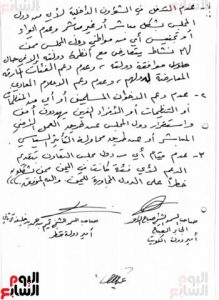 اليوم السابع
عدم التدخل في الشؤون الداخلية لأي من دول
المجلس بشكل مباشر أو غير مباشر وعدم إيواء
أو تجنيس أي من مواطني دول المجلس ممن
لهم نشاط يتعارض مع أنظمة دولته إلا في حال
موافقة دولته وعدم دعم الفئات المارقة
المعارضة لدولهم وعدم دعم الإعلام المعادي
عدم دعم الإخوان المسلمين أو أي من المنظمات
أو التنظيمات أو الأفراد الذين يهددون أمن
واستقرار دول المجلس عن طريق العمل الأمني
المباشر أو عن طريق محاولة التأثير السياسي
٣- عدم قيام أي من دول مجلس التعاون بتقديم
الدعم لأي فئة كانت في اليمن ممن يشكلون
خطراً على الدول المجاورة لليمن والله الموفق
صاحب السمو الشيخ صباح الأحمد
صاحب السمو الشيخ تميم بن حمد بن خليفة آل ثاني
الجابر الصباح
أمير دولة قطر
أمير دولة الكويت
اليوم السابع
اليوم السابع